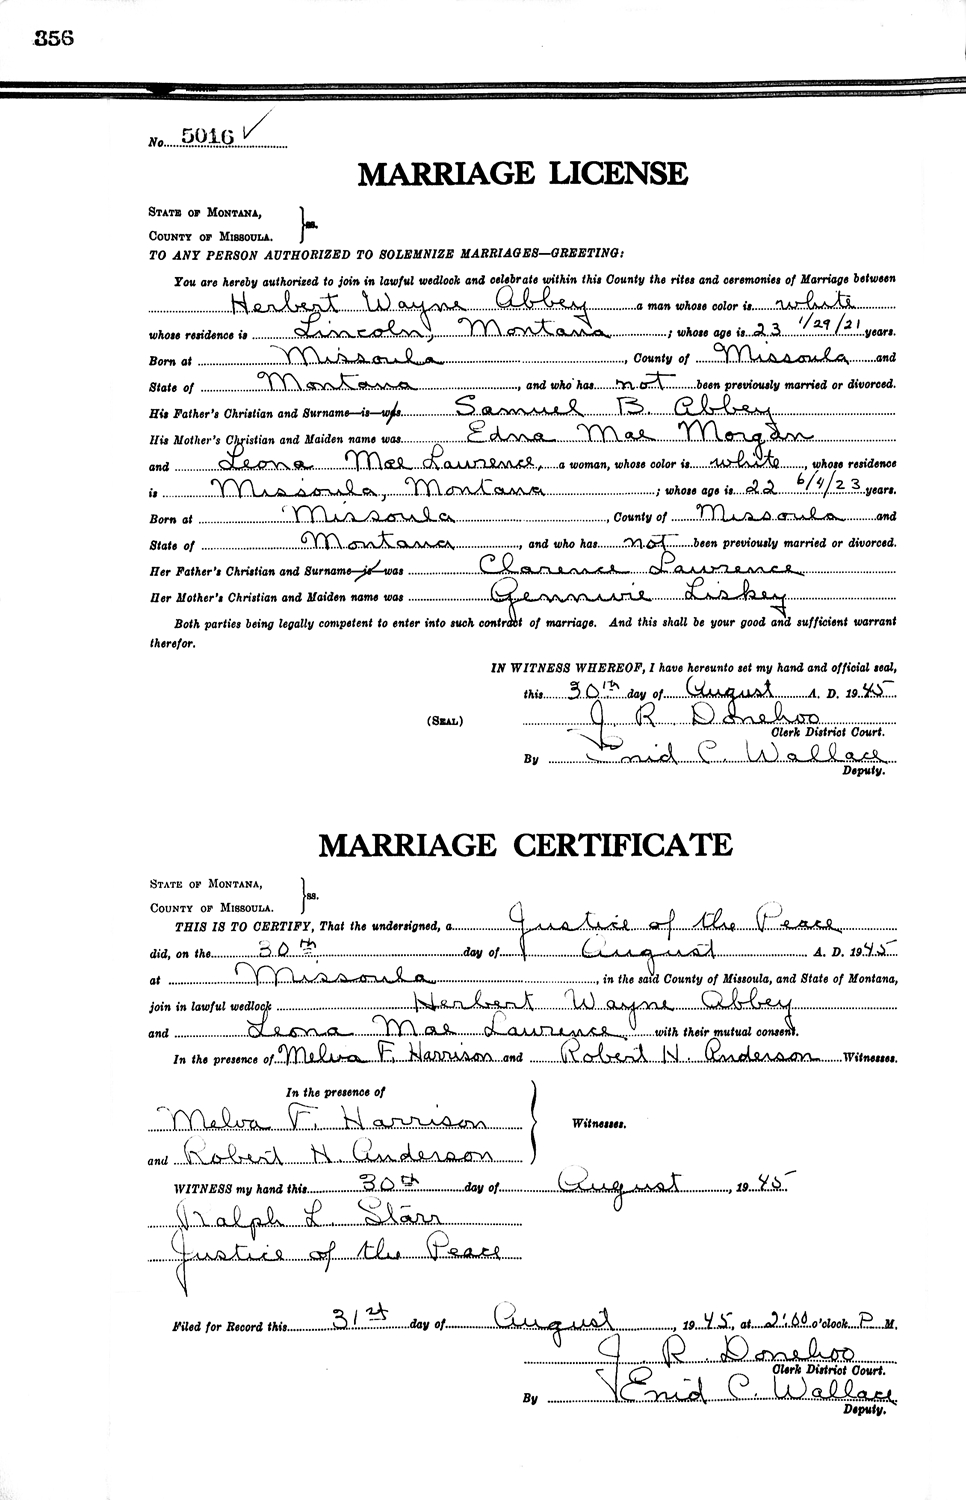 356
No. 5016 ✓
MARRIAGE LICENSE
STATE OF MONTANA,
COUNTY OF MISSOULA. } ss.
TO ANY PERSON AUTHORIZED TO SOLEMNIZE MARRIAGES—GREETING:
You are hereby authorized to join in lawful wedlock and celebrate within this County the rites and ceremonies of Marriage between
Herbert Wayne Abbey a man whose color is white
whose residence is Lincoln, Montana ; whose age is 23 1/29/21 years.
Born at Missoula, County of Missoula and
State of Montana, and who has not been previously married or divorced.
His Father's Christian and Surname is was Samuel B. Abbey
His Mother's Christian and Maiden name was Edna Mae Morgan
and Leona Mae Lawrence, a woman, whose color is white, whose residence
is Missoula, Montana ; whose age is 22 6/4/23 years.
Born at Missoula, County of Missoula and
State of Montana, and who has not been previously married or divorced.
Her Father's Christian and Surname is was Clarence Lawrence
Her Mother's Christian and Maiden name was Gennivie Liskey
Both parties being legally competent to enter into such contract of marriage. And this shall be your good and sufficient warrant
therefor.
IN WITNESS WHEREOF, I have hereunto set my hand and official seal,
this 30th day of August A. D. 1945.
(SEAL) J R Donehoo
Clerk District Court.
By Enid C. Wallace
Deputy.
MARRIAGE CERTIFICATE
STATE OF MONTANA,
COUNTY OF MISSOULA. } ss.
THIS IS TO CERTIFY, That the undersigned, a Justice of the Peace
did, on the 30th day of August A. D. 1945
at Missoula, in the said County of Missoula, and State of Montana,
join in lawful wedlock Herbert Wayne Abbey
and Leona Mae Lawrence with their mutual consent.
In the presence of Melva F. Harrison and Robert H. Anderson Witnesses.
In the presence of
Melva F. Harrison
Witnesses.
and Robert H. Anderson
WITNESS my hand this 30th day of August, 1945
Ralph L. Starr
Justice of the Peace
Filed for Record this 31st day of August, 1945, at 2:00 o'clock P M.
J. R. Donehoo
Clerk District Court.
By Enid C. Wallace
Deputy.